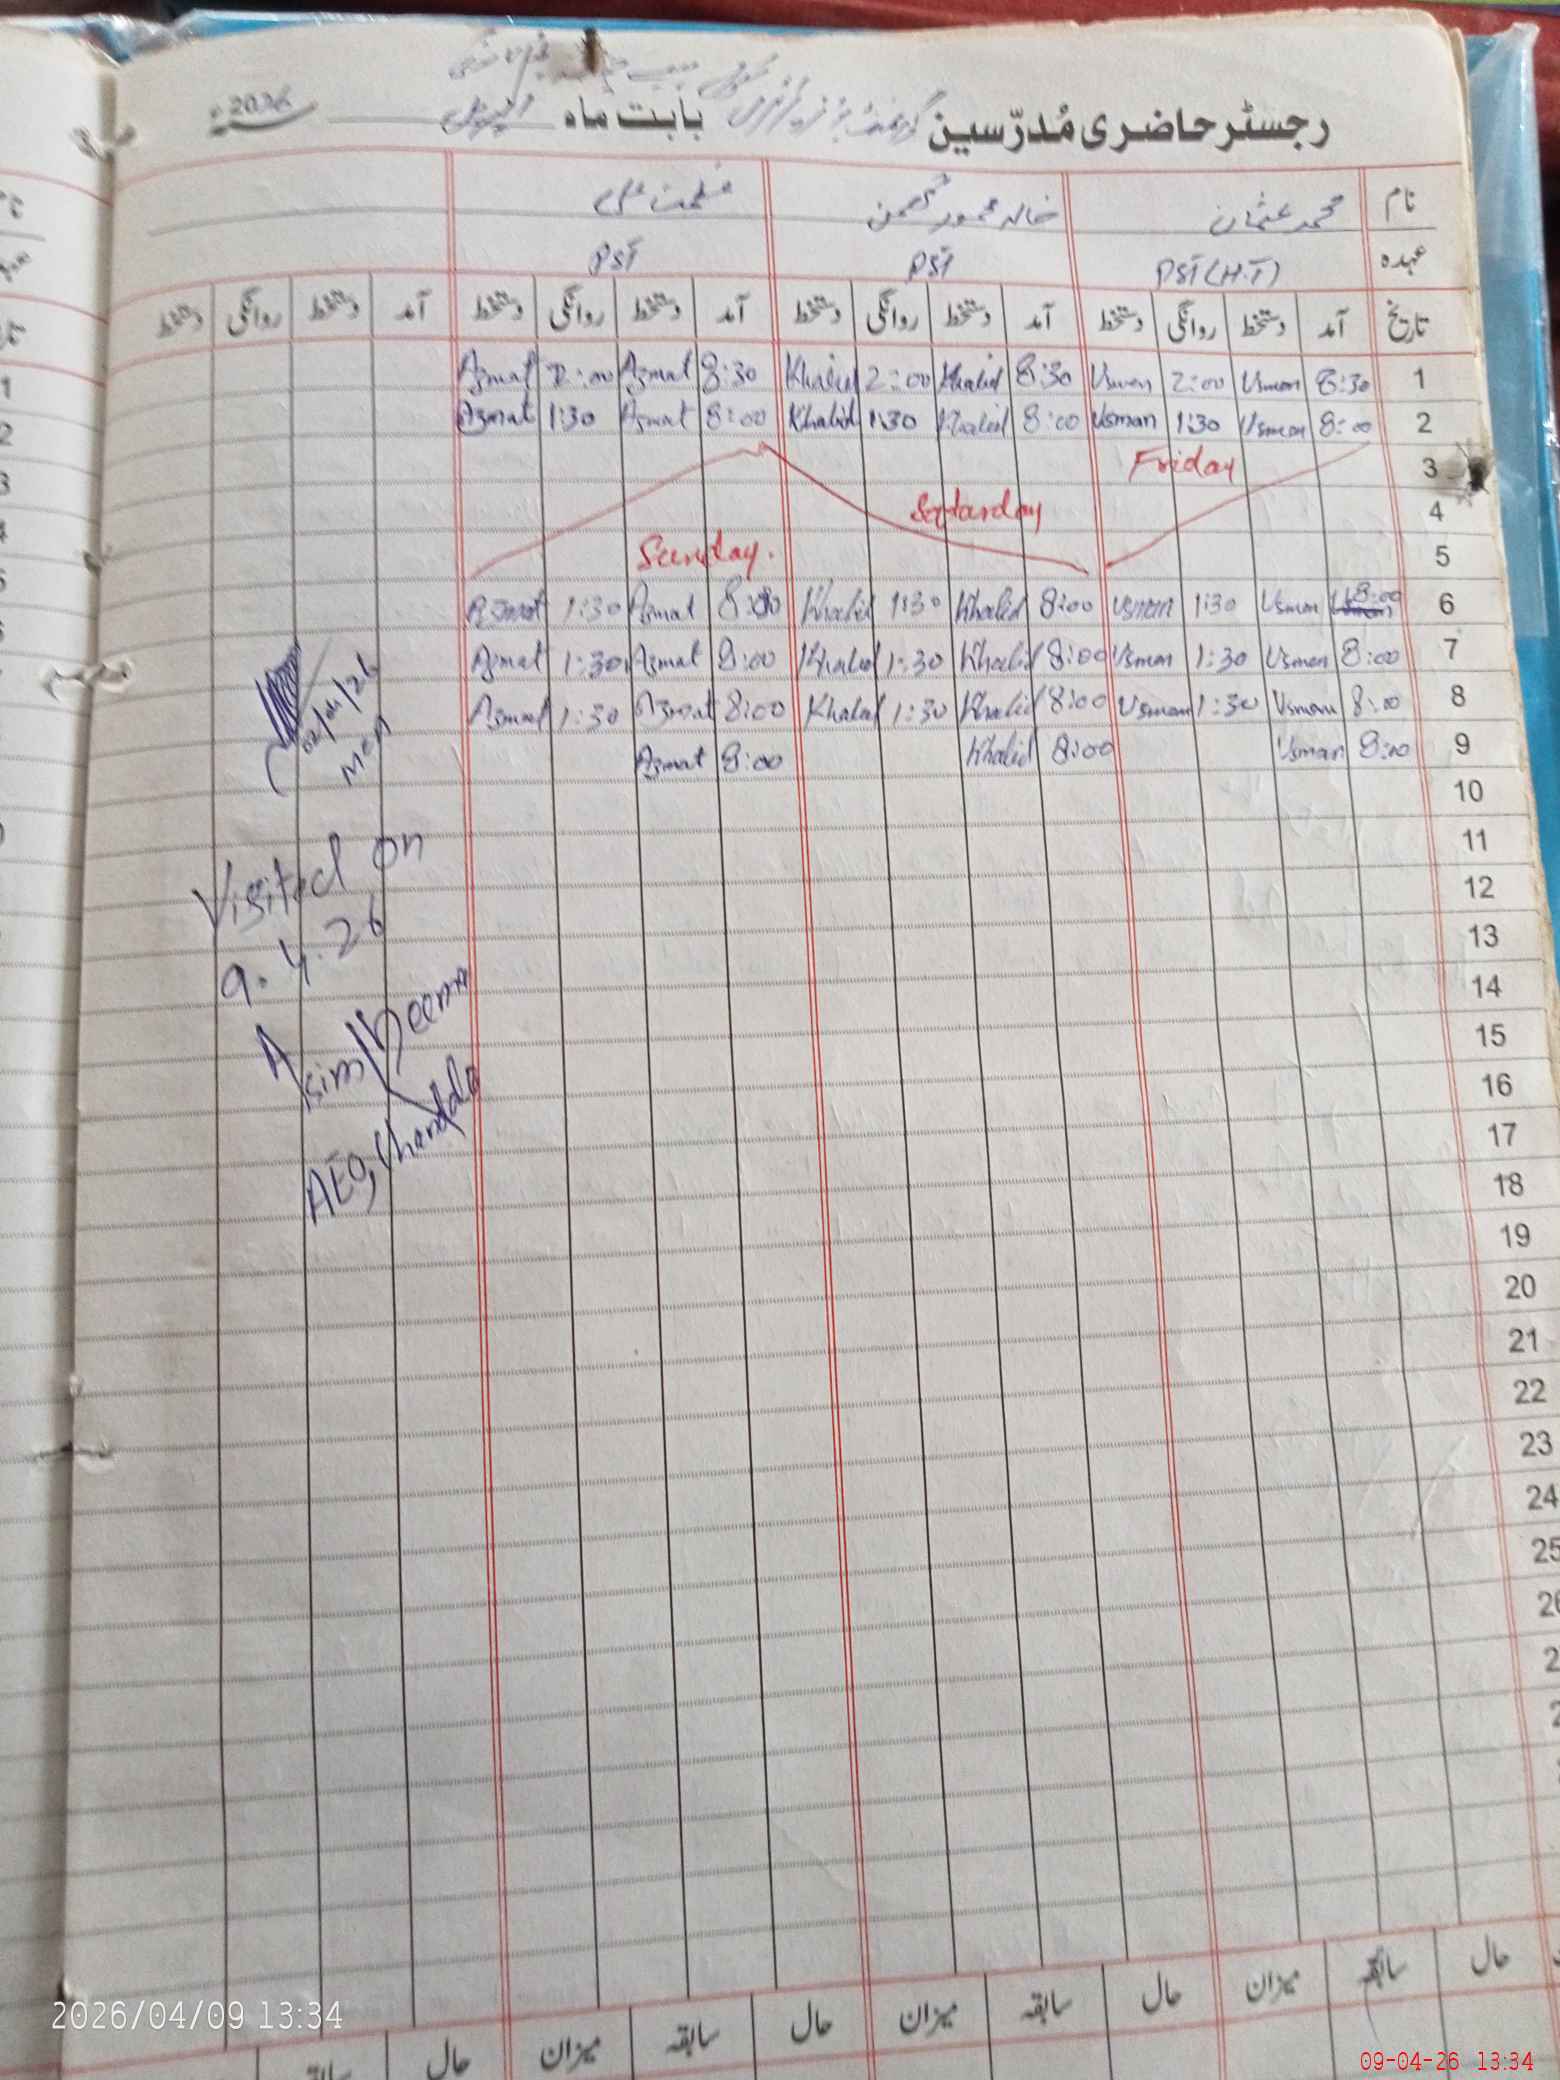 رجسٹر حاضری مُدرّسین گورنمنٹ بابت ماہ اپریل 2026ء
نام محمد عثمان خالد محمود عظمت علی
عہدہ PST (H.T) PST PST
تاریخ آمد دستخط روانگی دستخط آمد دستخط روانگی دستخط آمد دستخط روانگی دستخط آمد دستخط روانگی دستخط
1 8:30 Usman 2:00 Usman 8:30 Khalid 2:00 Khalid 8:30 Azmat 2:00 Azmat
2 8:00 Usman 1:30 Usman 8:00 Khalid 1:30 Khalid 8:00 Azmat 1:30 Azmat
3 Friday
4 Saturday
5 Sunday.
6 8:00 Usman 1:30 Usman 8:00 Khalid 1:30 Khalid 8:00 Azmat 1:30 Azmat
7 8:00 Usman 1:30 Usman 8:00 Khalid 1:30 Khalid 8:00 Azmat 1:30 Azmat
8 8:00 Usman 1:30 Usman 8:00 Khalid 1:30 Khalid 8:00 Azmat 1:30 Azmat
9 8:00 Usman 8:00 Khalid 8:00 Azmat
10
11
12
13
14
15
16
17
18
19
20
21
22
23
24
25
02/04/26
Visited on
9.4.26
Asim
AEO,
حال سابقہ میزان حال سابقہ میزان حال سابقہ میزان حال
2026/04/09 13:34
09-04-26 13:34